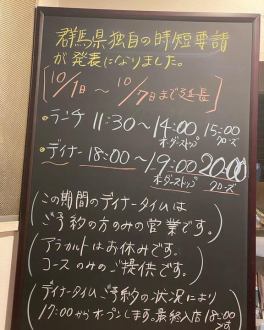 群馬県独自の時短要請
が発表になりました。
10/1日〜10/7日まで延長
・ランチ 11:30〜14:00 15:00
オーダーストップ クローズ
・ディナー 18:00〜19:00 20:00
オーダーストップ クローズ
この期間のディナータイムは
ご予約の方のみの営業です。
アラカルトはお休みです。
コースのみのご提供です。
ディナータイムご予約の状況により
17:00からオープンします。最終入店18:00
です